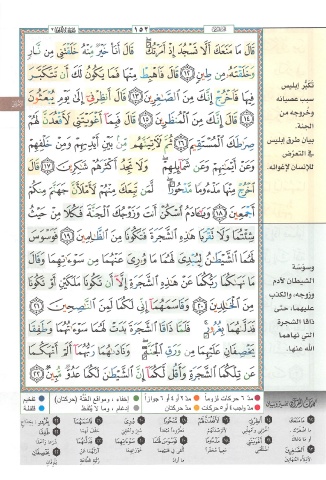 ١٥٢
قَالَ مَا مَنَعَكَ أَلَّا تَسْجُدَ إِذْ أَمَرْتُكَ قَالَ أَنَا۠ خَيْرٌ مِّنْهُ خَلَقْتَنِى مِن نَّارٍ
وَخَلَقْتَهُۥ مِن طِينٍ ١٢ قَالَ فَٱهْبِطْ مِنْهَا فَمَا يَكُونُ لَكَ أَن تَتَكَبَّرَ
فِيهَا فَٱخْرُجْ إِنَّكَ مِنَ ٱلصَّٰغِرِينَ ١٣ قَالَ أَنظِرْنِىٓ إِلَىٰ يَوْمِ يُبْعَثُونَ
١٤ قَالَ إِنَّكَ مِنَ ٱلْمُنظَرِينَ ١٥ قَالَ فَبِمَآ أَغْوَيْتَنِى لَأَقْعُدَنَّ لَهُمْ
صِرَٰطَكَ ٱلْمُسْتَقِيمَ ١٦ ثُمَّ لَءَاتِيَنَّهُم مِّنۢ بَيْنِ أَيْدِيهِمْ وَمِنْ خَلْفِهِمْ
وَعَنْ أَيْمَٰنِهِمْ وَعَن شَمَآئِلِهِمْ وَلَا تَجِدُ أَكْثَرَهُمْ شَٰكِرِينَ ١٧ قَالَ
ٱخْرُجْ مِنْهَا مَذْءُومًا مَّدْحُورًا لَّمَن تَبِعَكَ مِنْهُمْ لَأَمْلَأَنَّ جَهَنَّمَ مِنكُمْ
أَجْمَعِينَ ١٨ وَيَٰٓـَٔادَمُ ٱسْكُنْ أَنتَ وَزَوْجُكَ ٱلْجَنَّةَ فَكُلَا مِنْ حَيْثُ
شِئْتُمَا وَلَا تَقْرَبَا هَٰذِهِ ٱلشَّجَرَةَ فَتَكُونَا مِنَ ٱلظَّٰلِمِينَ ١٩ فَوَسْوَسَ
لَهُمَا ٱلشَّيْطَٰنُ لِيُبْدِىَ لَهُمَا مَا وُۥرِىَ عَنْهُمَا مِن سَوْءَٰتِهِمَا وَقَالَ
مَا نَهَىٰكُمَا رَبُّكُمَا عَنْ هَٰذِهِ ٱلشَّجَرَةِ إِلَّآ أَن تَكُونَا مَلَكَيْنِ أَوْ تَكُونَا
مِنَ ٱلْخَٰلِدِينَ ٢٠ وَقَاسَمَهُمَآ إِنِّى لَكُمَا لَمِنَ ٱلنَّٰصِحِينَ ٢١
فَدَلَّىٰهُمَا بِغُرُورٍ فَلَمَّا ذَاقَا ٱلشَّجَرَةَ بَدَتْ لَهُمَا سَوْءَٰتُهُمَا وَطَفِقَا
يَخْصِفَانِ عَلَيْهِمَا مِن وَرَقِ ٱلْجَنَّةِ وَنَادَىٰهُمَا رَبُّهُمَآ أَلَمْ أَنْهَكُمَا
عَن تِلْكُمَا ٱلشَّجَرَةِ وَأَقُل لَّكُمَآ إِنَّ ٱلشَّيْطَٰنَ لَكُمَا عَدُوٌّ مُّبِينٌ ٢٢
تكبُّر إبليس
سبب عصيانه
وخروجه من
الجنة.
بيان طرق إبليس
في التعرّض
للإنسان لإغوائه.
وسوسة
الشيطان لآدم
وزوجه، والكذب
عليهما، حتى
ذاقا الشجرة
التي نهاهما
الله عنها.
مدّ ٦ حركات لزوماً
مدّ ٢ أو ٤ أو ٦ جوازاً
إخفاء، ومواقع الغُنَّة (حركتان)
تفخيم
مدّ واجب ٤ أو ٥ حركات
مدّ حركتان
إدغام، وما لا يُلفظ
قلقلة